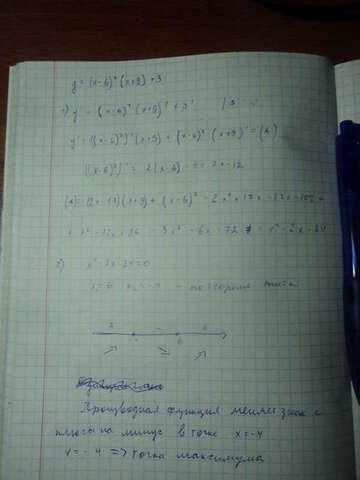 y = (x-6)² (x+9) + 3
1) y' = (x-6)² (x+9)' + 3'
y' = ((x-6)²)' (x+9) + (x-6)² (x+9)' = (*)
((x-6)²)' = 2(x-6) = 2x-12
(*) = (2x-12)(x+9) + (x-6)² = 2x² + 18x - 12x - 108 +
+ x² - 12x + 36 = 3x² - 6x - 72 = x² - 2x - 24
2) x² - 2x - 24 = 0
x₁ = 6 x₂ = -4 - по теореме
+ - +
6
Производная функции меняет знак с
плюса на минус в точке x = -4
x = -4 => точка максимума